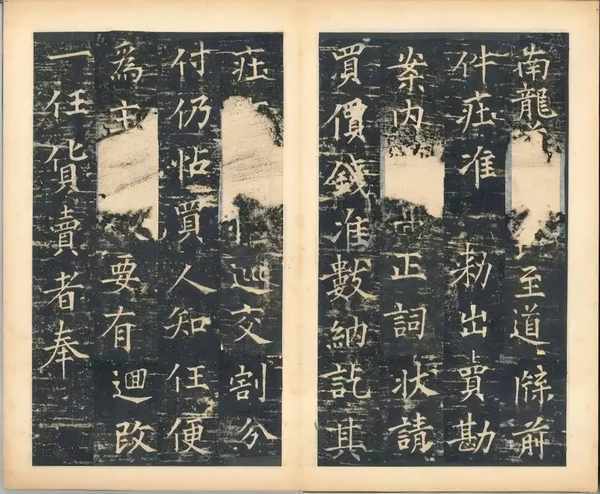 南龍至道牒前
件庄准 勑出賣勘
案内正詞状請
買價錢准數納訖其
庄巡交割分
付仍帖買人知任便
爲主要有迴改
一任貨賣者奉